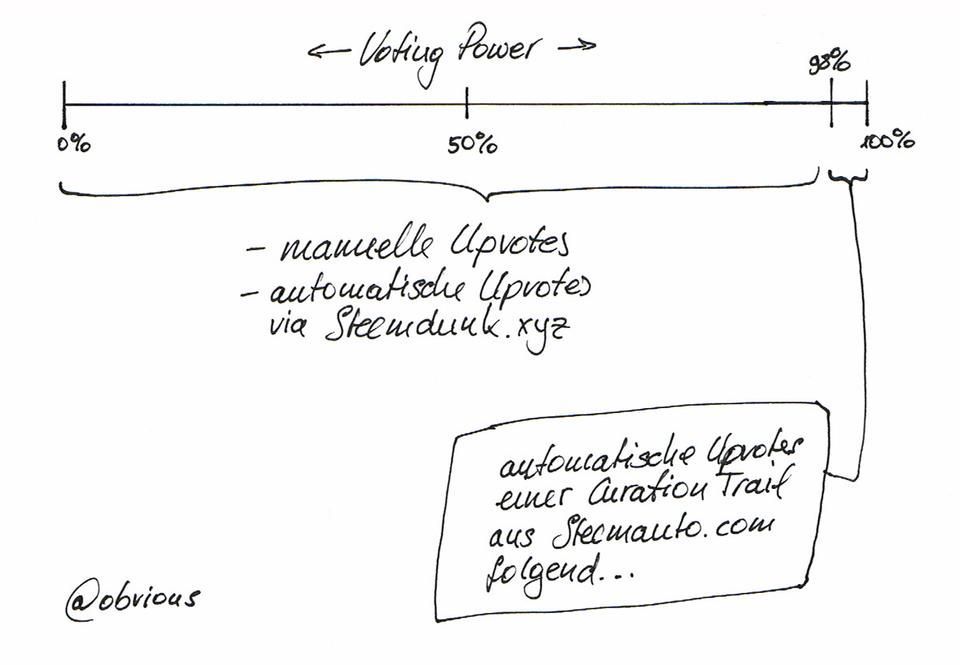 ← Voting Power →
98%
0%
50%
100%
- manuelle Upvotes
- automatische Upvotes
via Steemdunk.xyz
automatische Upvotes
einer Curation Trail
aus Steemauto.com
folgend...
@obvious